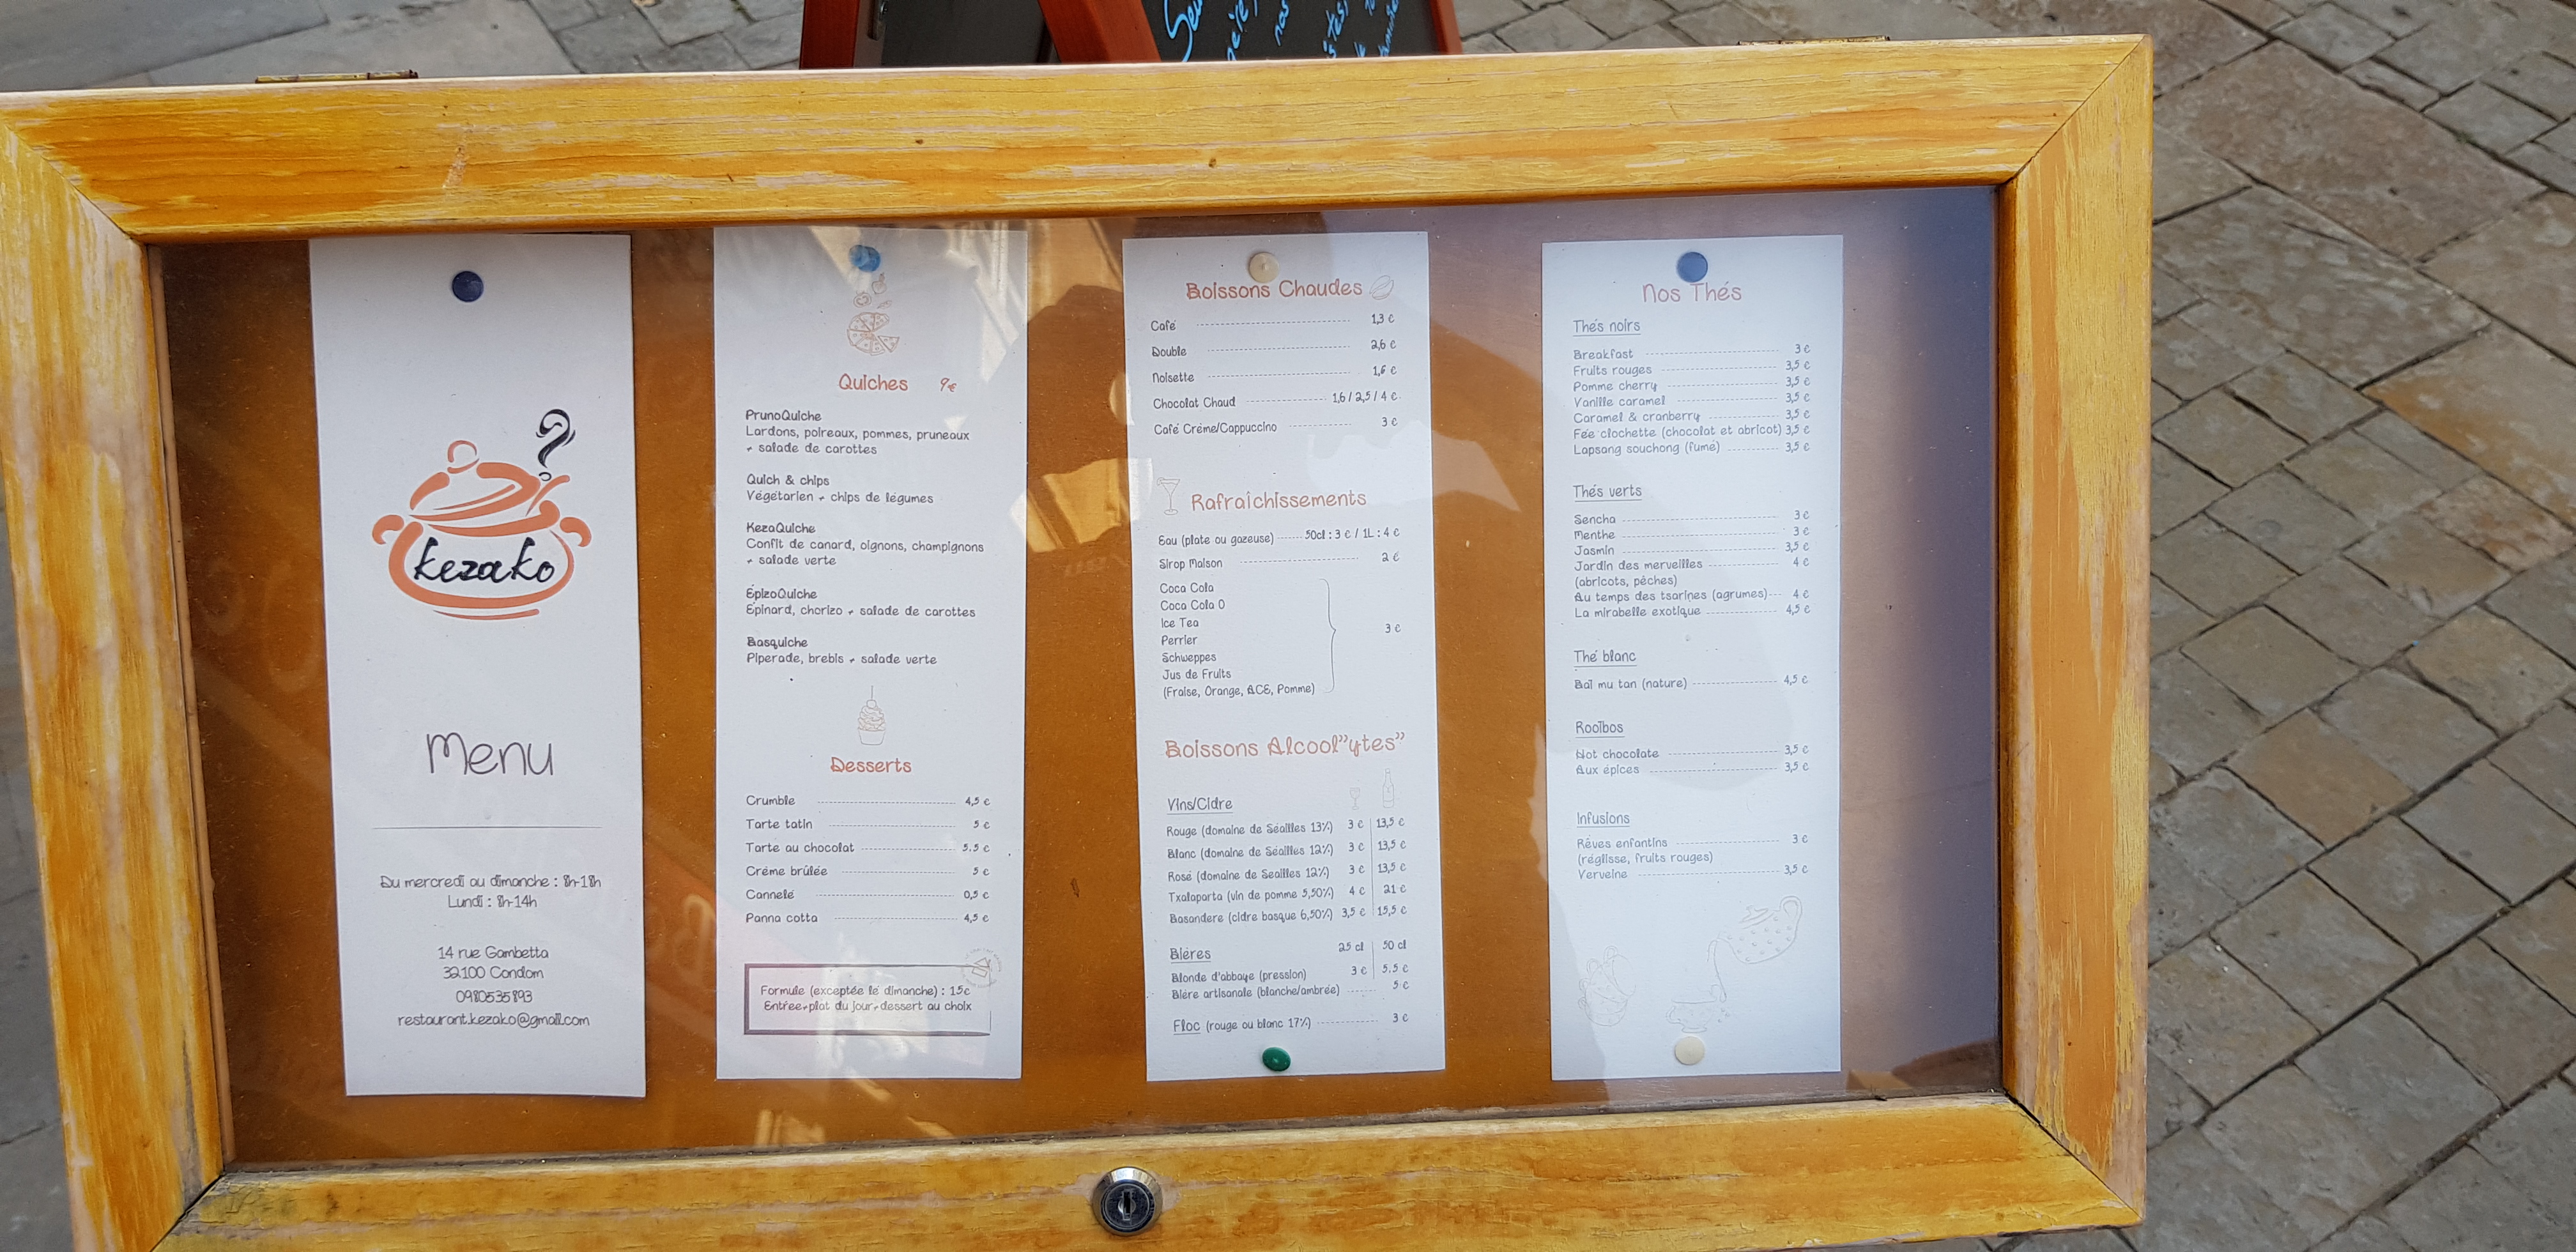 kezako
Menu
Du mercredi au dimanche : 8h-18h
Lundi : 8h-14h
14 rue Gambetta
32100 Condom
0980535893
restaurant.kezako@gmail.com
Quiches 9€
PrunoQuiche
Lardons, poireaux, pommes, pruneaux
+ salade de carottes
Quich & chips
Végétarien + chips de légumes
KezaQuiche
Confit de canard, oignons, champignons
+ salade verte
ÉpizoQuiche
Épinard, chorizo + salade de carottes
Basquiche
Piperade, brebis + salade verte
Desserts
Crumble 4,5 €
Tarte tatin 5 €
Tarte au chocolat 5.5 €
Crème brûlée 5 €
Cannelé 0,5 €
Panna cotta 4,5 €
Formule (exceptée le dimanche) : 15€
Entrée+plat du jour+dessert au choix
Boissons Chaudes
Café 1,3 €
Double 2,6 €
Noisette 1,6 €
Chocolat Chaud 1,6 / 2,5 / 4 €
Café Crème/Cappuccino 3 €
Rafraîchissements
Eau (plate ou gazeuse) 50cl : 3 € / 1L : 4 €
Sirop Maison 2 €
Coca Cola
Coca Cola 0
Ice Tea
Perrier
Schweppes
Jus de Fruits
(Fraise, Orange, ACE, Pomme)
3 €
Boissons Alcool"ytes"
Vins/Cidre
Rouge (domaine de Séailles 13%) 3 € 13,5 €
Blanc (domaine de Séailles 12%) 3 € 13,5 €
Rosé (domaine de Séailles 12%) 3 € 13,5 €
Txalaparta (vin de pomme 5,50%) 4 € 21 €
Basandere (cidre basque 6,50%) 3,5 € 15,5 €
Bières 25 cl 50 cl
Blonde d'abbaye (pression) 3 € 5.5 €
Bière artisanale (blanche/ambrée) 5 €
Floc (rouge ou blanc 17%) 3 €
Nos Thés
Thés noirs
Breakfast 3 €
Fruits rouges 3,5 €
Pomme cherry 3,5 €
Vanille caramel 3,5 €
Caramel & cranberry 3,5 €
Fée clochette (chocolat et abricot) 3,5 €
Lapsang souchong (fumé) 3,5 €
Thés verts
Sencha 3 €
Menthe 3 €
Jasmin 3,5 €
Jardin des merveilles 4 €
(abricots, pêches)
Au temps des tsarines (agrumes) 4 €
La mirabelle exotique 4,5 €
Thé blanc
Baï mu tan (nature) 4,5 €
Rooïbos
Hot chocolate 3,5 €
Aux épices 3,5 €
Infusions
Rêves enfantins 3 €
(réglisse, fruits rouges)
Verveine 3,5 €